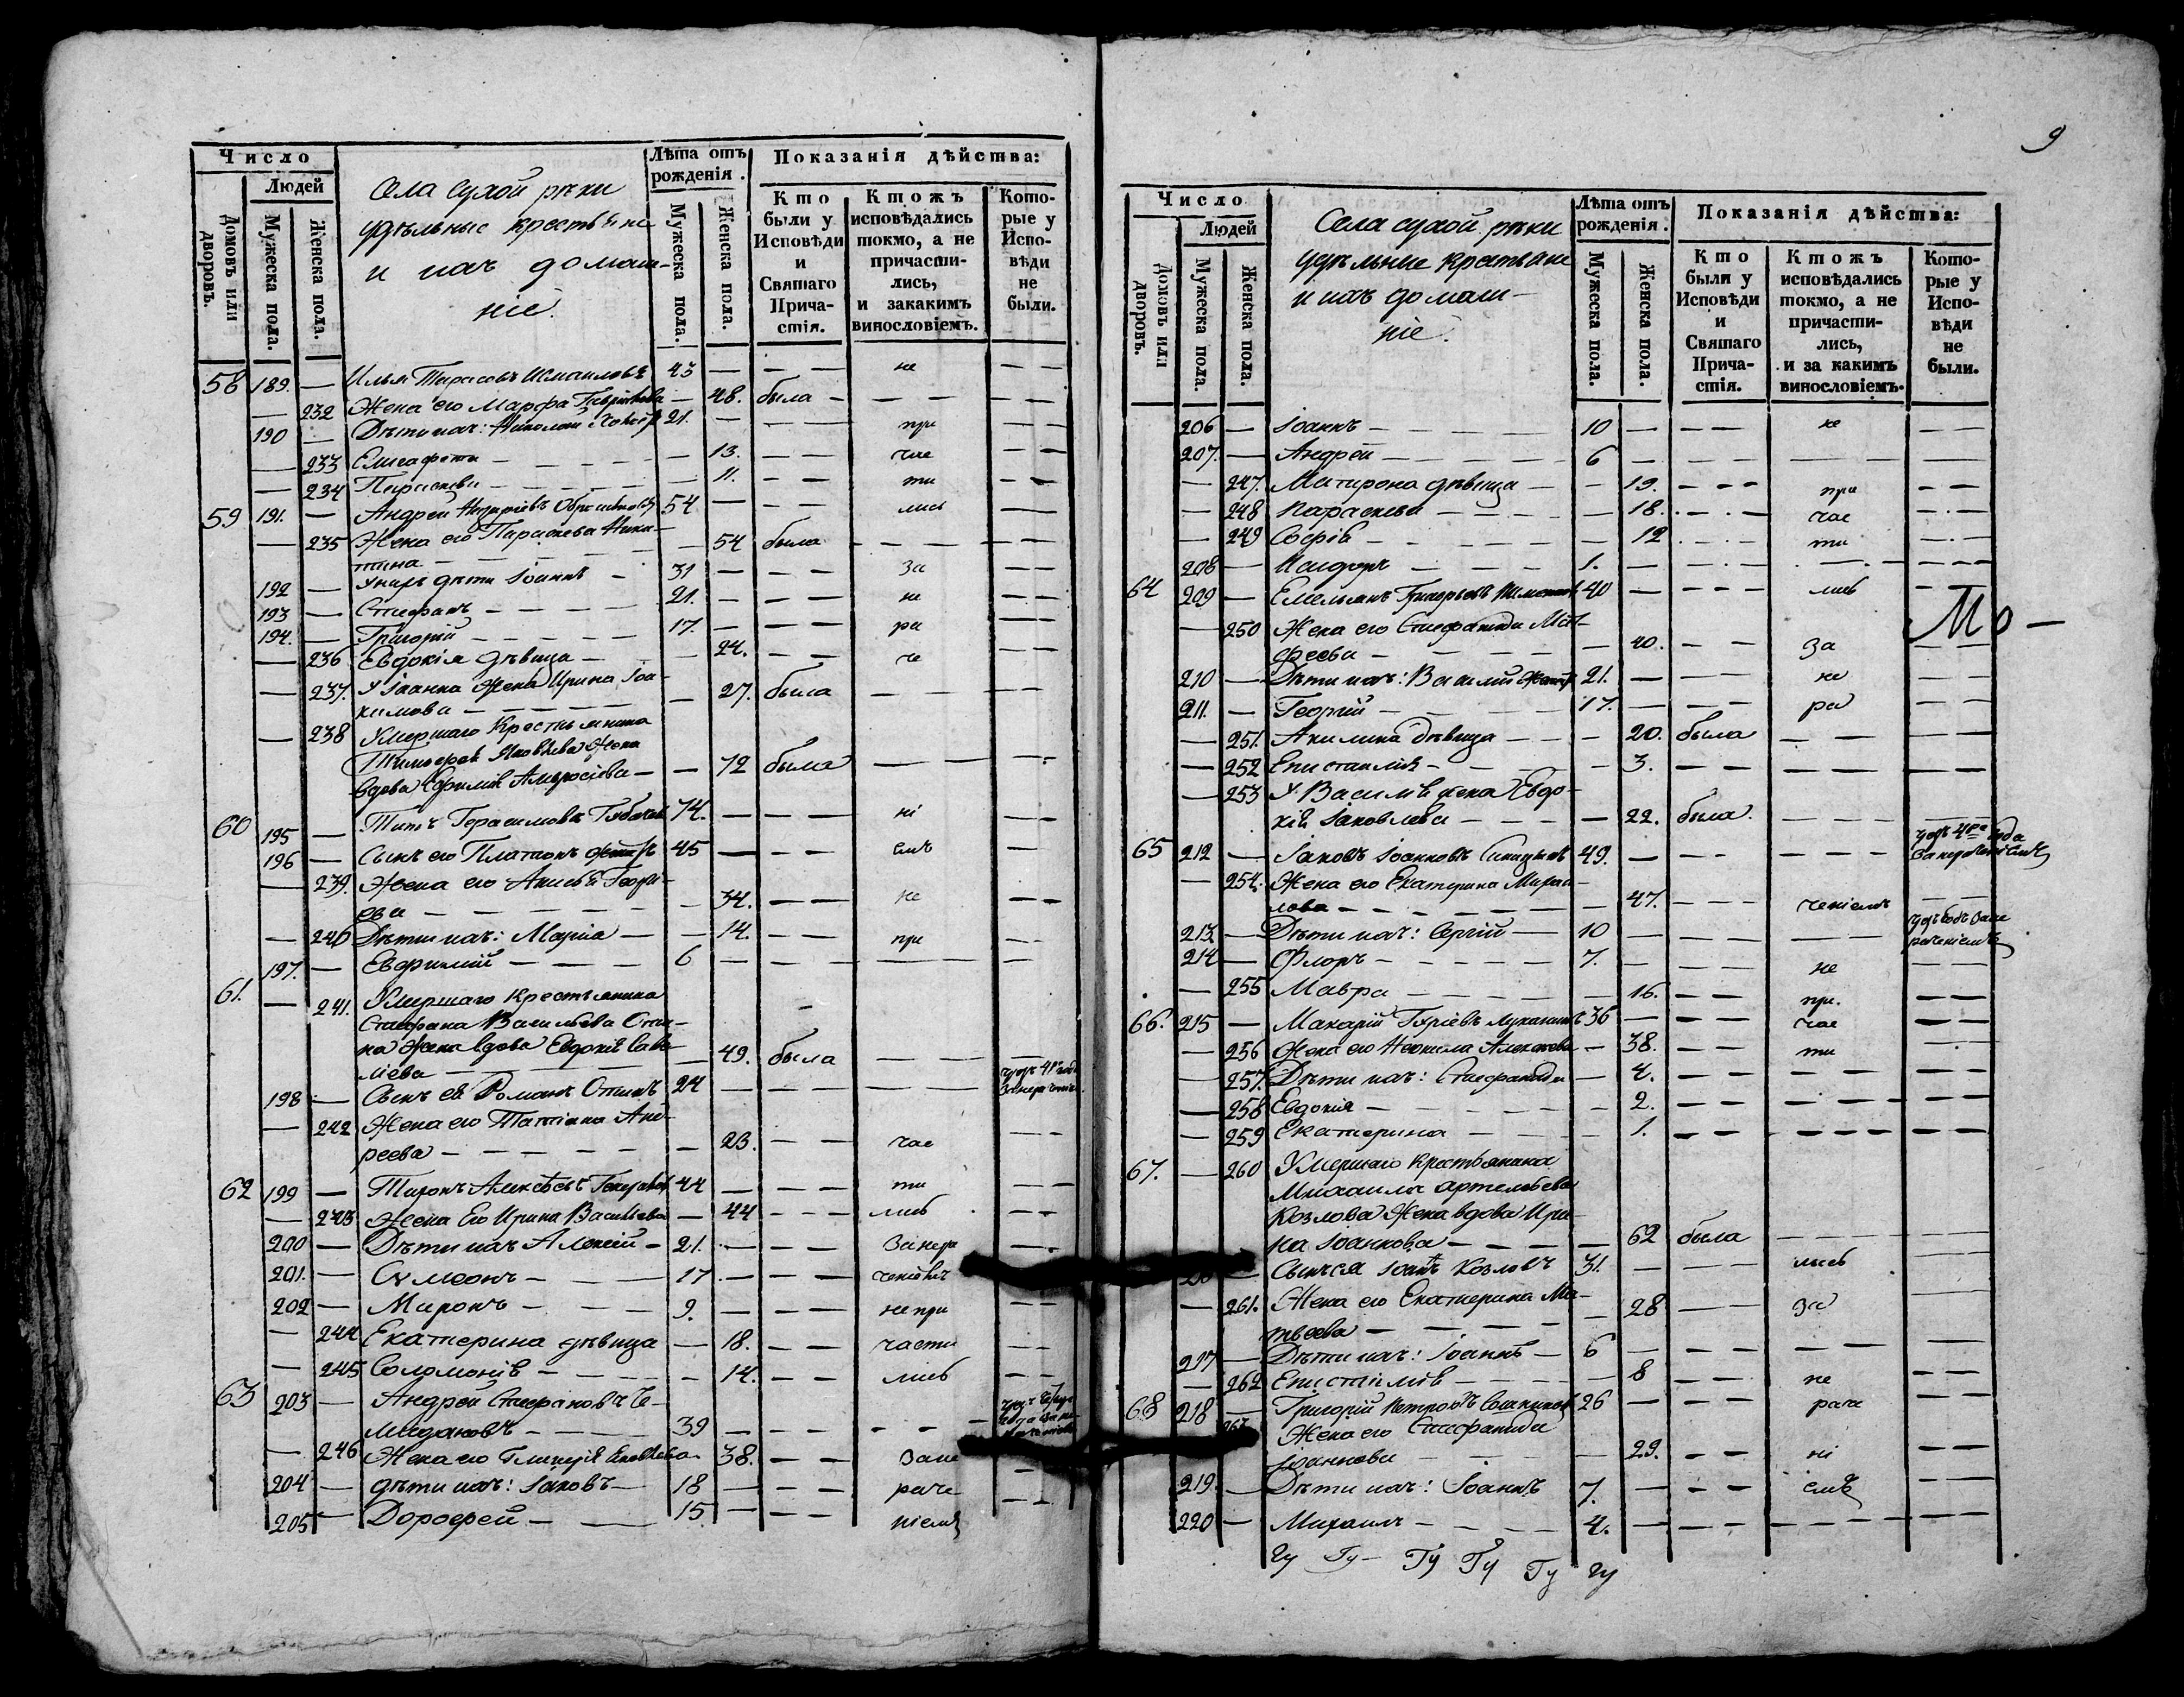 Число
Людей
Домовъ или дворовъ.
Мужеска пола.
Женска пола.
Села сухой реки
удѣльные крестьяне
и ихъ домаш-
ніе.
Лѣта отъ рожденія.
Мужеска пола.
Женска пола.
Показанія дѣйства:
Кто были у Исповѣди и Святаго Прича-стія.
Ктожъ исповѣдались токмо, а не причасти-лись, и закакимъ винословіемъ.
Кото-рые у Испо-вѣди не были.
58 189. — Илья Тарасовъ 43 — — — не — —
— 232 Жена его Марфа — 48. была — — — — —
190 — Дѣти ихъ: Николай 21. — — — при — —
— 233 Елисафета — — — — 13. — — час — —
— 234 Параскева — — — — 11. — — ти — —
59 191. — Андрей 54 — — — лись — —
— 235 Жена его Параскева Ники-
тина — — — — 54 была — — — —
192 — У нихъ дѣти Іоаннъ — 31 — — — за — —
193 — Стефанъ — — — 21. — — — не — —
194. — Григорій — — — 17. — — — ра — —
— 236 Евдокія дѣвица — — 24. — — че — —
— 237. У Іоанна жена Ирина Іоа-
кимова — — — — 27. была — — — —
— 238 Умершаго Крестьянина
Тимофея Яковлева жена
вдова Ефимія Амвросіева — — 72 была — — — —
60 195 — Титъ Герасимовъ 74. — — — ні —
196 — Сынъ его Платонъ 45 — — — емъ —
— 239. Жена его Георгі-
ева — — — — 34. — — не — —
— 240 Дѣти ихъ: Марія — — 14. — — при — —
197. — Евфимій — — — 6 — — — — —
61. — 241. Умершаго крестьянина
Стефана Васильева
жена вдова Евдокія Сава-
тіева — — — 49. была — — —
198 — Сынъ ея Романъ 24 — — — —
— 242 Жена его Татіана Анд-
реева — — — — 23. — — час — —
62 199 — Тихонъ Алексѣевъ 44 — — — ти — —
— 243 Жена Его Ирина Васильева — 44 — — лись — —
200 — Дѣти ихъ Алексій — 21. — — — За нера — —
201. — Сѵмеонъ — — 17 — — — ченіемъ
202 — Миронъ — — — 9. — — — не при — —
— 244 Екатерина дѣвица — 18. — — части — —
— 245 Соломонія — — — — 14. — — лись — —
63 203 — Андрей Стефановъ Че-
мидановъ — — — 39 — — — — —
— 246 Жена его Гликерія Яковлева — 38. — — За не
204 — дѣти ихъ: Іаковъ — 18 — — — раче —
205 — Дорофей — — 15. — — — ніемъ — —
9
Число
Людей
Домовъ или дворовъ.
Мужеска пола.
Женска пола.
Села сухой реки
удѣльные крестьяне
и ихъ домаш-
ніе.
Лѣта отъ рожденія.
Мужеска пола.
Женска пола.
Показанія дѣйства:
Кто были у Исповѣди и Святаго Прича-стія.
Ктожъ исповѣдались токмо, а не причасти-лись, и за какимъ винословіемъ.
Кото-рые у Испо-вѣди не были.
206 — Іоаннъ — — — — 10 — — — не — —
207. — Андрей — — — — 6 — — — — — —
— 247. Матрона дѣвица — — 19. — — — при — —
— 248 Параскева — — — — 18. — — час — —
— 249 Софія — — — — 12 — — ти — —
208 — Исидоръ — — — 1. — — — — —
64 209 — Емельянъ Григорьевъ 40 — — — лись — —
Мо —
— 250 Жена его Стефанида Мат-
феева — — — — 40. — — за — —
210 — Дѣти ихъ: Василій 21. — — — не — —
211. — Георгій — — — 17. — — — ра — —
— 251. Акилина дѣвица — — — 20. была — — — —
— 252 Епистимія — — — 3. — — — — — —
— 253 У Василія жена Евдо-
кія Іаковлева — — — — 22. была. — — —
65 212 — Іаковъ Іоанновъ 49. — — — — — —
— 254. Жена его Екатерина Михаи-
лова — — — — — 47. — — ченіемъ — —
213 — Дѣти ихъ: Сергій — 10 — — — — —
214 — Флоръ — — — — 7. — — — не — —
— 255 Мавра — — — — 16. — — при. — —
66. 215 — Макарій 36 — — — час — —
— 256 Жена его Неонила Алексѣева — 38. — — ти — —
— 257. Дѣти ихъ: Стефанида — 4. — — — — —
— 258 Евдокія — — — — 2. — — — — —
— 259 Екатерина — — — 1. — — — — — —
67. — 260 Умершаго крестьянина
Михаила Артемьева
Козлова жена вдова Ири-
на Іоаннова — — — — 62 была — — — —
Сынъ ея Козловъ 31. — — — лись — —
— 261. Жена его Екатерина Ма-
твеева — — — — 28 — — за — —
217 — Дѣти ихъ: Іоаннъ — 6 — — — — —
— 262 Епистимія — — — 8 — — не — —
68 218 — Григорій Петровъ 26 — — — раче — —
Жена его Стефанида
Іоаннова — — — — 29. — — ні — —
219. — Дѣти ихъ: Іоаннъ 7. — — — емъ — —
220 — Михаилъ — — — 4. — — — — — —